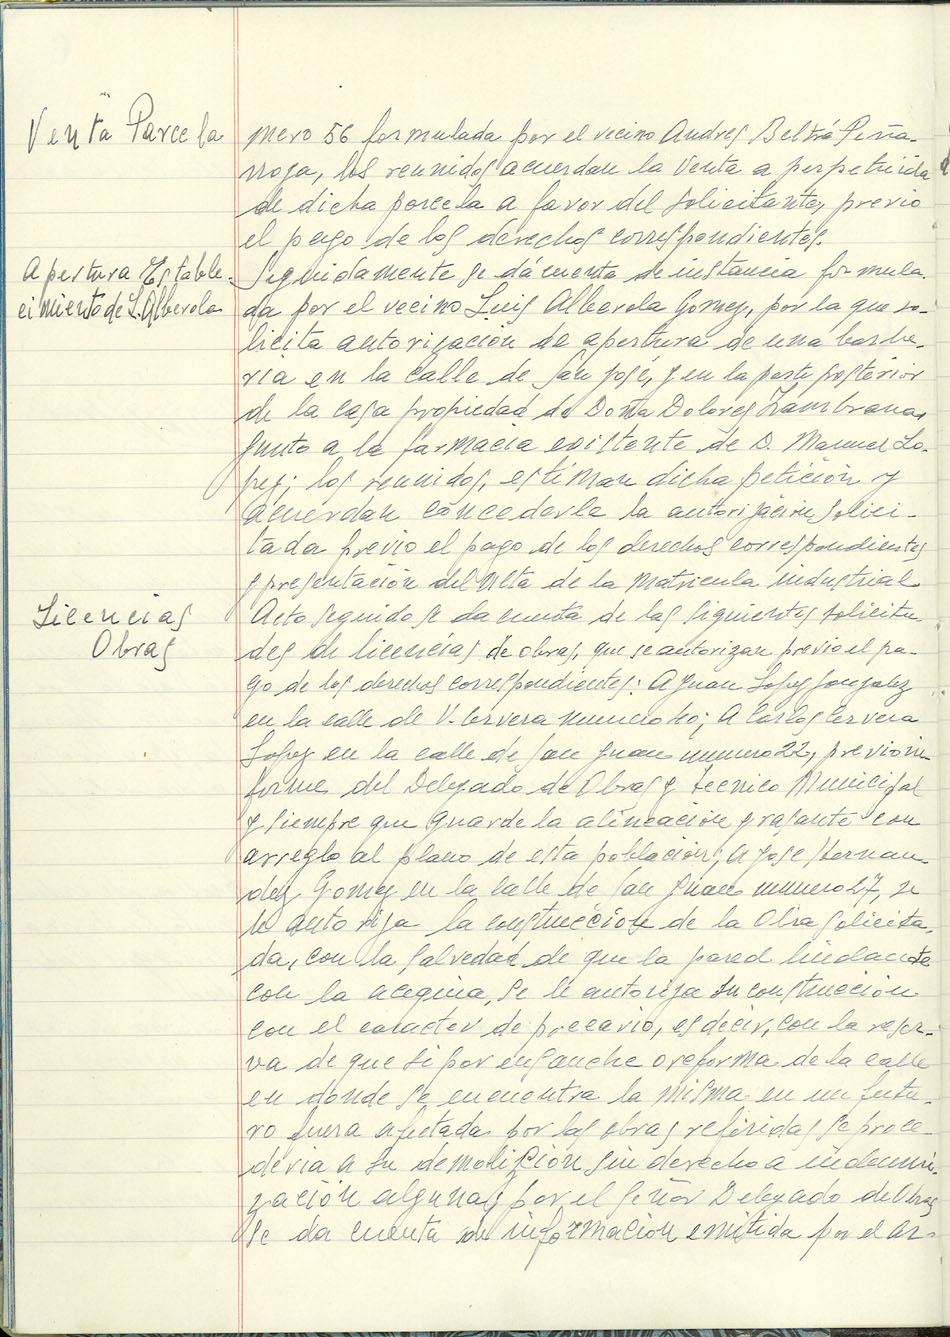 Venta Parcela
mero 56 formulada por el vecino Andres Beltrá Peña-
rroja, los reunidos acuerdan la Venta a perpetuida
de dicha parcela a favor del solicitante, previo
el pago de los derechos correspondientes.
Apertura Estable-
cimiento de L. Alberola
Seguidamente se dá cuenta de instancia formula-
da por el vecino Luis Alberola Gomez, por la que so-
licita autorización de apertura de una barbe-
ria en la calle de San José, y en la parte posterior
de la casa propiedad de Doña Dolores Zambrana,
junto a la farmacia existente de D. Manuel Lo-
pez; los reunidos, estiman dicha petición y
acuerdan concederle la autorización solici-
tada previo el pago de los derechos correspondientes
y presentación del Alta de la Matricula industrial
Licencias
Obras
Acto seguido se da cuenta de las siguientes solicitu
des de licencias de obras, que se autorizan previo el pa-
go de los derechos correspondientes: A Juan Lopez Gonzalez
en la calle de V. Cervera numero 40; A Carlos Cervera
Lopez en la calle de San Juan numero 22, previo in-
forme del Delegado de Obras y Tecnico Municipal
y siempre que guarde la alineación y rasante con
arreglo al plano de esta población; A José Hernan-
dez Gomez en la calle de San Juan numero 27, se
le autoriza la construcción de la Obra solicita-
da, con la salvedad de que la pared lindante
con la acequia, se le autoriza su construcción
con el caracter de precario, es decir, con la reser-
va de que si por ensanche o reforma de la calle
en donde se encuentra la misma en un futu-
ro fuera afectada por las obras referidas se proce-
deria a su demolición sin derecho a indemni-
zación alguna; por el Señor Delegado de Obras
se da cuenta de información emitida por el Ar-